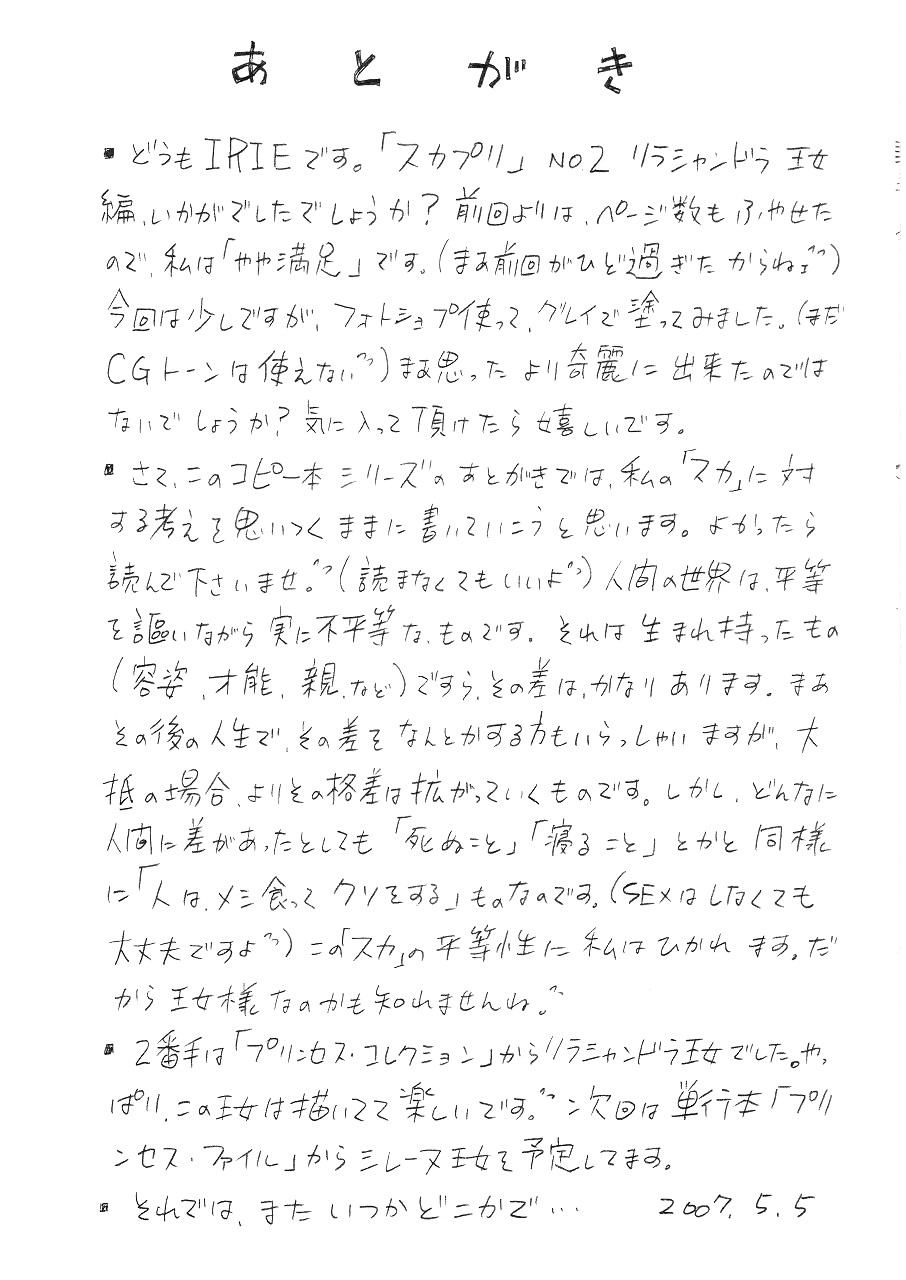 あとがき
▪どうもIRIEです。「スカプリ」NO.2 リラシャンドラ王女
編、いかがでしたでしょうか？前回よりは、ページ数もふやせた
ので、私は「やや満足」です。(まあ前回がひど過ぎたからねェ^^)
今回は少しですが、フォトショプ使って、グレイで塗ってみました。(まだ
CGトーンは使えない^^)まあ思ったより奇麗に出来たのでは
ないでしょうか？気に入って頂けたら嬉しいです。
▪さて、このコピー本シリーズのあとがきでは、私の「スカ」に対
する考えを思いつくままに書いていこうと思います。よかったら
読んで下さいませ。^^(読まなくてもいいよ^^)人間の世界は、平等
を謳いながら実に不平等な、ものです。それは生まれ持ったもの
(容姿、才能、親、など)ですら、その差は、かなりあります。まあ
その後の人生で、その差をなんとかする方もいらっしゃいますが、大
抵の場合、よりその格差は拡がっていくものです。しかし、どんなに
人間に差があったとしても「死ぬこと」「寝ること」とかと同様
に「人は、メシ食ってクソをする」ものなのです。(SEXはしなくても
大丈夫ですよ^^)この「スカ」の平等性に私はひかれます。だ
から王女様なのかも知れませんね。^^
▪2番手は「プリンセス・コレクション」からリラシャンドラ王女でした。やっ
ぱり、この王女は描いてて楽しいです。^^次回は単行本「プリ
ンセス・ファイル」からミレーヌ王女を予定してます。
▪それでは、またいつかどこかで… 2007.5.5